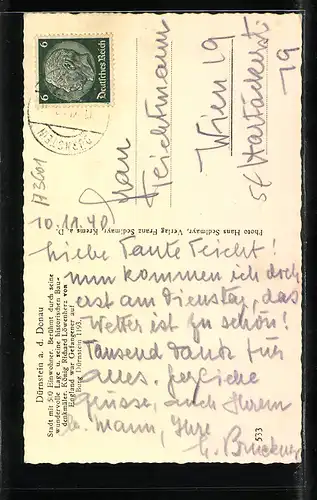 6
Deutsches Reich
6
DÜRNSTEIN
Frau
Feichtmann
Wien 19
Hartäckerstr.
19
A3601
10.11.40
Liebe Tante Feicht!
nun kommen ich doch
erst am Dienstag, das
Wetter ist zu schön!
Tausend Dank für
alles herzliche
Grüsse, auch Ihrem
Mann, Ihre
Bruckner
Dürnstein a. d. Donau
Stadt mit 510 Einwohner. Berühmt durch seine
wundervolle Lage u. seine historischen Bau-
denkmäler. König Richard Löwenherz von
England war Gefangener auf
Burg Dürnstein 1193.
533
Photo Hans Sedlmayr, Verlag Franz Sedlmayr, Krems a. D.